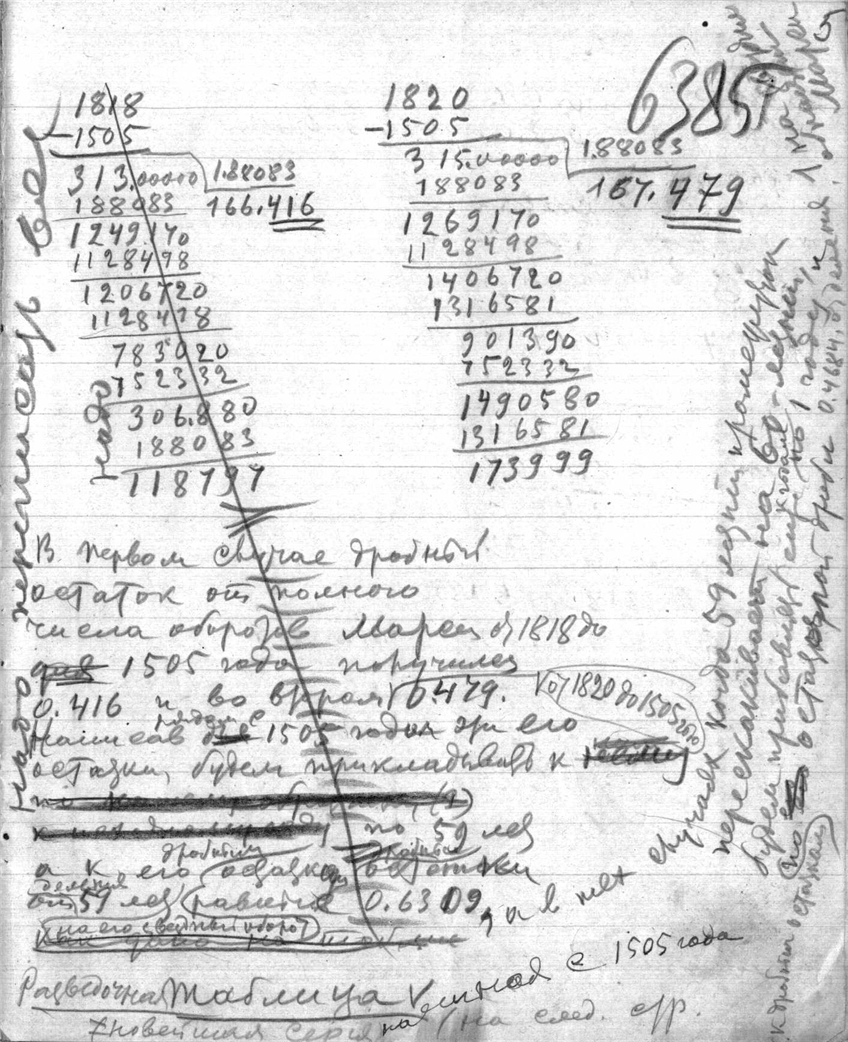 6385
1818
-1505
313.00000 1.88083
188083 166.416
1249170
1128498
1206720
1128498
783020
752332
306.880
188083
118797
1820
-1505
315.00000 1.88083
188083 167.479
1269170
1128498
1406720
1316581
901390
752332
1490580
1316581
173999
надо переписать все
надо
В первом случае дробный
остаток от полного
числа оборотов Марса от 1818 до
1505 года получился
0.416 и во втором 0479. от 1820 до 1505 го
Написав рядом с 1505 годом эти его
остатки, будем прикладывать к
по 59 лет
а к его дробным остаткам дробные остатки
деления 59 лет равные 0.6309,
на его звездный оборот
а в тех случаях когда 59 летний промежуток
перескакивает на 60-летний,
будем прибавлять еще по 1 году, и
к дробным остаткам
остаточной дроби 0.4684, от деления 1 на
Разведочная Таблица V
начиная с 1505 года
Новейшая серия (на след. стр.